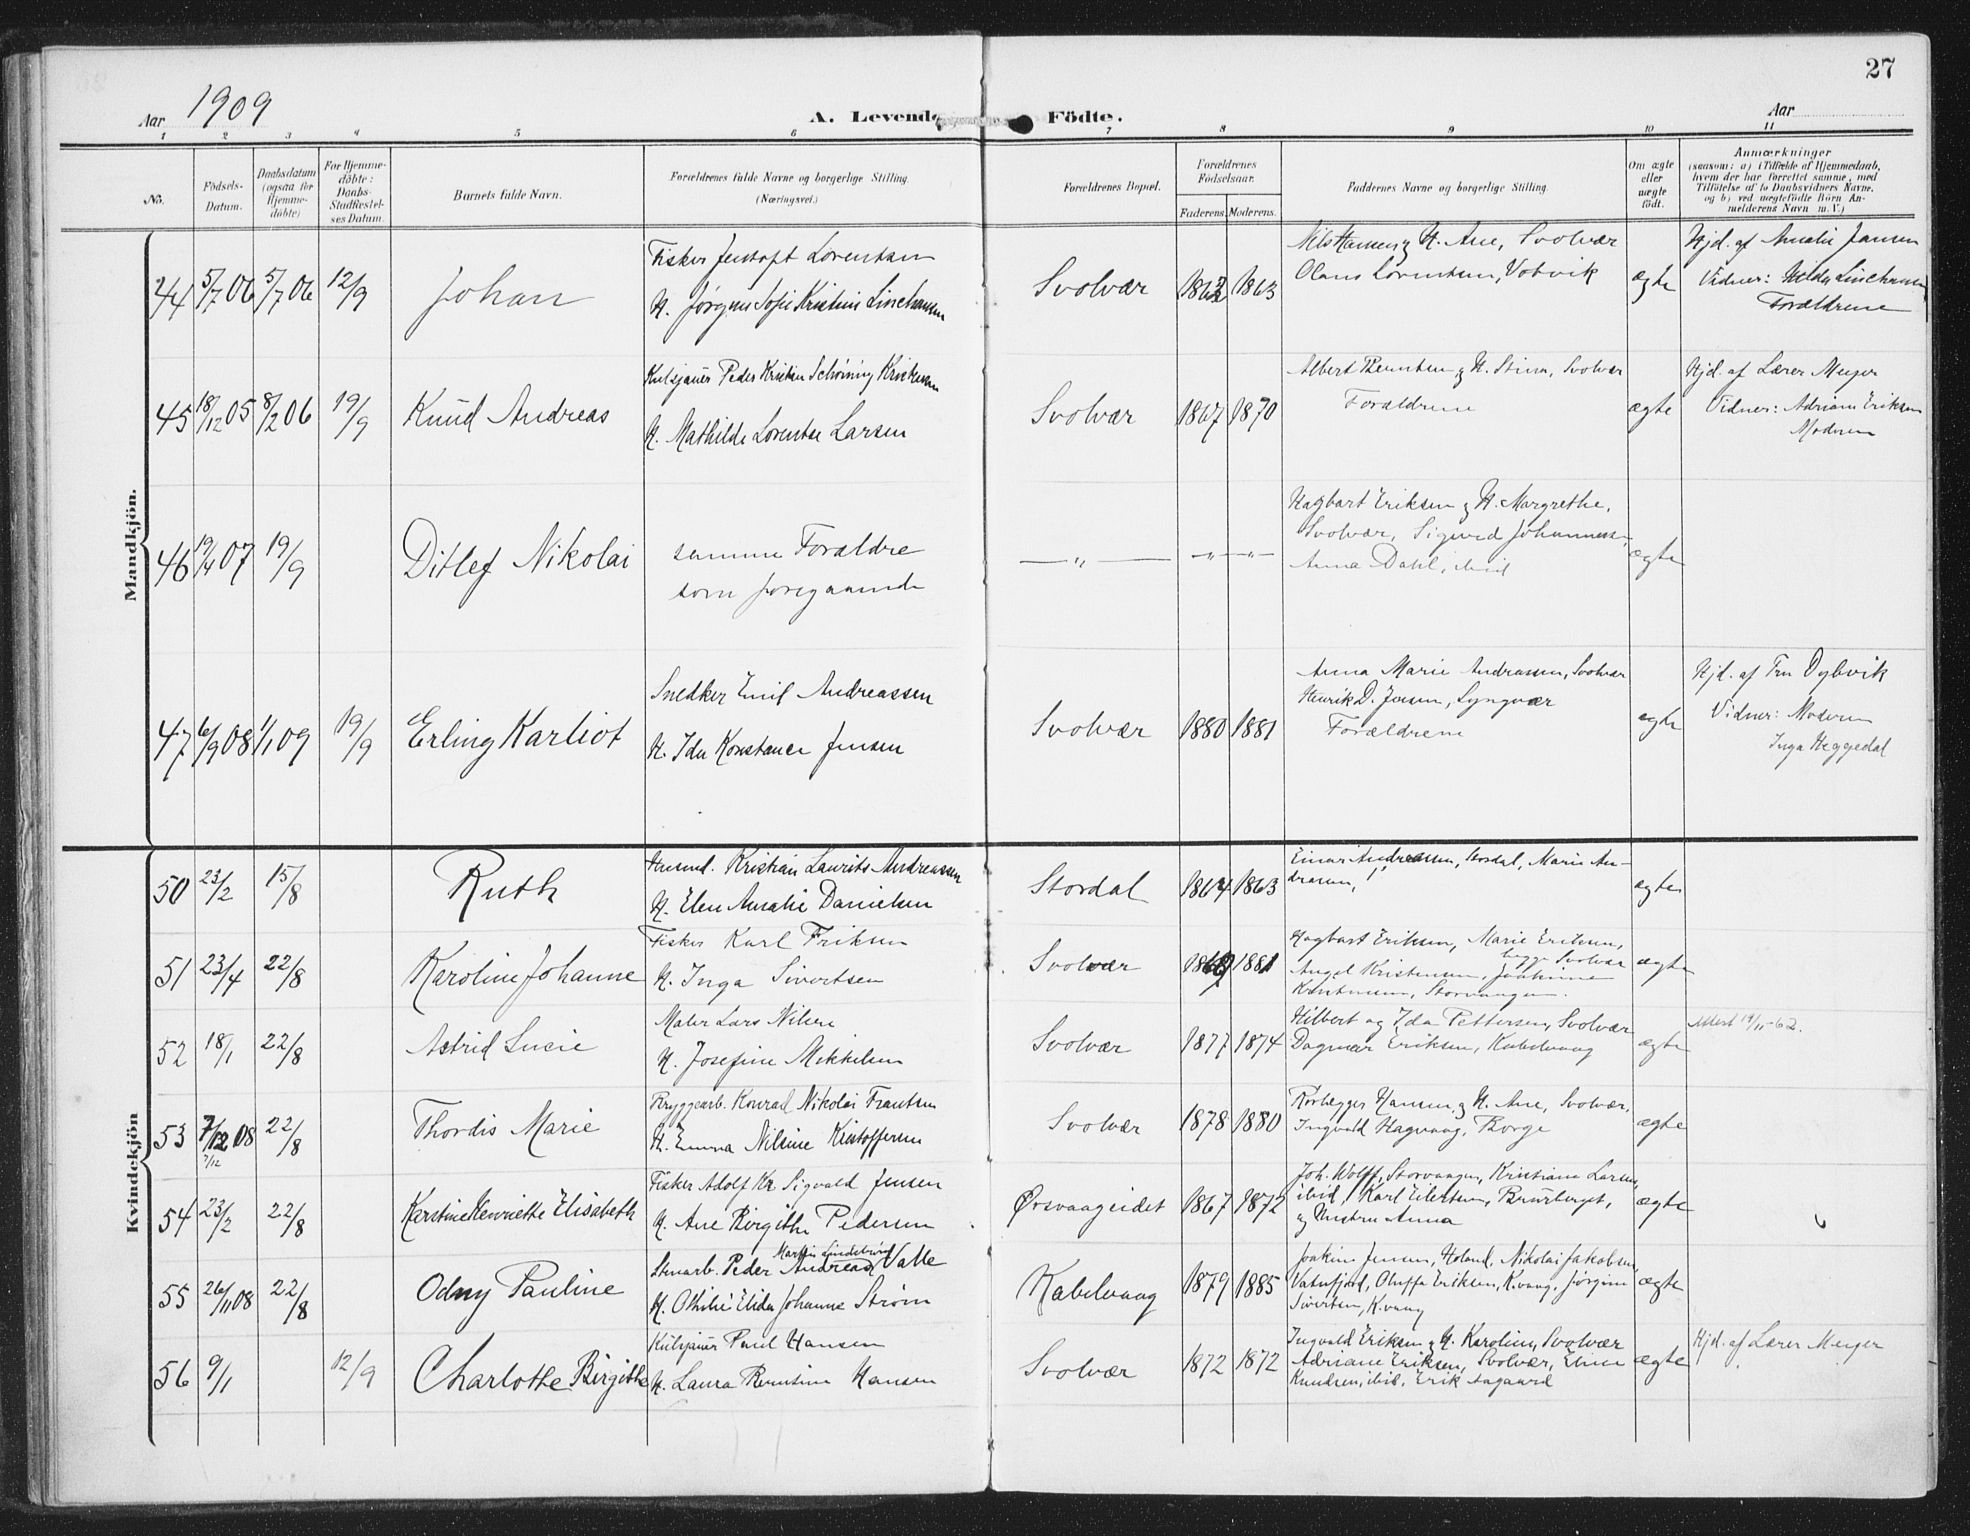 27
Aar 1909
A. Levende Födte.
Aar
1 2 3 4 5 6 7 8 9 10 11
No.
Födsels-Datum.
Daabsdatum (ogsaa for Hjemme-döbte)
For Hjemme-döbte: Daabs-Stadfæstel-ses Datum.
Barnets fulde Navn.
Forældrenes fulde Navne og borgerlige Stilling (Næringsvei.)
Forældrenes Bopæl.
Forældrenes Födselsaar.
Faderens. Moderens.
Faddernes Navne og borgerlige Stilling
Om ægte eller uægte födt.
Anmærkninger
(saasom: a) i Tilfælde af Hjemmedaab,
hvem der har forrettet samme, med
Tilföielse af to Daabsvidners Navne,
og b) ved uægtefödte Börn An-
melderens Navn m. V.)
Mandkjön.
44 5/7 06 5/7 06 12/9 Johan
Fisker Jentoft Lorentsen
H. Jørgine Sofie Kristine
Svolvær 1863
Nils Hansen og H. Ane, Svolvær
Olaus Lorentsen, Votvik
ægte
Hjd. af Amalie Jansen
Vidner: Hilda
Forældrene
45 18/12 05 8/2 06 19/9 Knud Andreas
Kulsjauer Peder Kristian Schöning
H. Mathilde Lorentse Larsen
Svolvær 1867 1870
Albert Berntsen og H. Stina, Svolvær
Forældrene
ægte
Hjd. af Lærer Meyer
Vidner: Adriane Eriksen
Moderen
46 19/4 07 19/9 Ditlef Nikolai
samme Forældre
som foregaaende
— „ — — „ — „ —
Hagbart Eriksen og H. Margrethe,
Svolvær, Sigurd Johannessen,
Anna Dahl, ibid
ægte
47 6/9 08 1/1 09 19/9 Erling Karliot
Snedker Emil Andreassen
H. Ida Konstance Jensen
Svolvær 1880 1881
Anna Marie Andreassen, Svolvær
Henrik D. Jensen, Lyngvær
Forældrene
ægte
Hjd. af Fru Dybvik
Vidner: Moderen
Inga Heggedal
Kvindekjön
50 23/2 15/8 Ruth
Husmd. Kristian Laurits Andreassen
H. Elen Amalie Danielsen
Stordal 1864 1863
Einar Andreassen, Stordal, Marie An-
dreassen, "
ægte
51 23/4 22/8 Karoline Johanne
Fisker Karl Eriksen
H. Inga Sivertsen
Svolvær 1881
Hagbart Eriksen, Marie Eriksen,
begge Svolvær
Angel Kristensen,
Kristensen, Storvaagen.
ægte
52 18/1 22/8 Astrid Lucie
Maler Lars Nilsen
H. Josefine Mikkelsen
Svolvær 1877 1874
Hilbert og Ida Pettersen, Svolvær
Dagmar Eriksen, Kabelvaag
ægte
Attest 19/11-62.
53 7/12 08 22/8 Thordis Marie
7/12
Bryggearb. Konrad Nikolai Frantsen
H. Emma Nilsine Kristoffersen
Svolvær 1878 1880
Rørlægger Hansen og H. Ane, Svolvær,
Ingvald Hagvaag, Borge
ægte
54 23/2 22/8 Karstine Henriette Elisabeth
Fisker Adolf Kr Sigvald Jensen
H. Ane Birgithe Pedersen
Ørsvaageidet 1867 1872
Joh. Wolff, Storvaagen, Kristiane Larsen,
ibid, Karl Eilertsen,
og Hustru Anna
ægte
55 26/11 08 22/8 Odny Pauline
Martin Lindebrød
Stenarb. Peder Andreas Valle
H. Othilie Elida Johanne Strøm
Kabelvaag 1879 1885
Joakim Jensen, Holand, Nikolai Jakobsen,
Vatnfjord, Oluffa Eriksen, K.vaag, Jørgine
Sivertsen, K.vaag
ægte
56 9/1 12/9 Charlotte Birgithe
Kulsjauer Paul Hansen
H. Laura Berntine Hansen
Svolvær 1872 1872
Ingvald Eriksen og H. Karoline, Svolvær
Adriane Eriksen, Svolvær, Eline
Knudsen, ibid, Erik Aagaard
ægte
Hjd. af Lærer Meyer